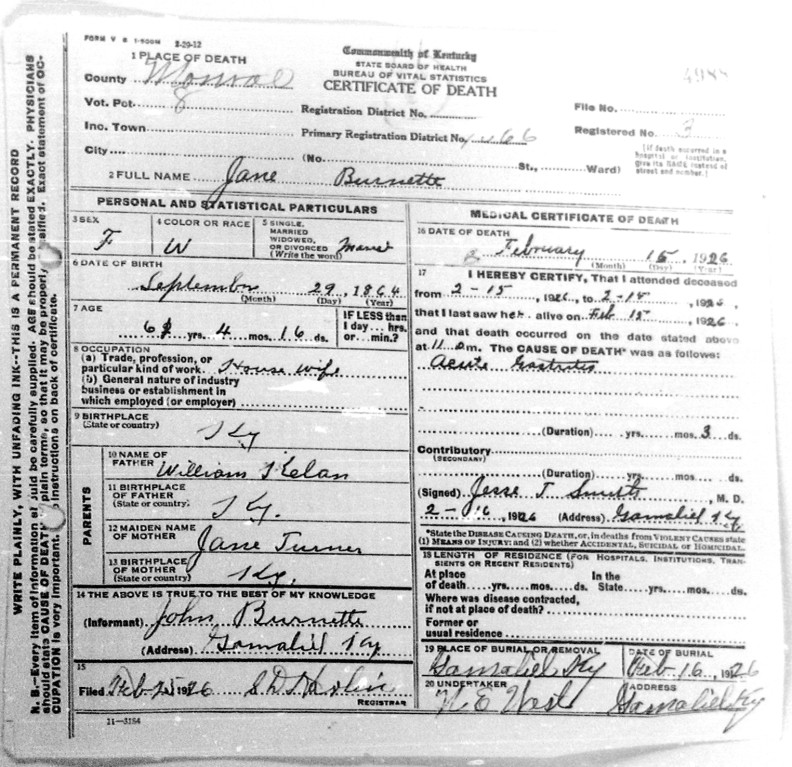 FORM V S 1-500M 2-29-12
1 PLACE OF DEATH
County Monroe
Vot. Pct. 8
Inc. Town
City
Commonwealth of Kentucky
STATE BOARD OF HEALTH
BUREAU OF VITAL STATISTICS
CERTIFICATE OF DEATH
Registration District No.
Primary Registration District No.
File No.
Registered No. 3
(No. St., Ward)
[If death occurred in a
hospital or institution,
give its NAME instead of
street and number.]
2 FULL NAME Jane Burnette
PERSONAL AND STATISTICAL PARTICULARS
3 SEX
F
4 COLOR OR RACE
W
5 SINGLE,
MARRIED
WIDOWED,
OR DIVORCED
(Write the word)
6 DATE OF BIRTH
September 29, 1864
(Month) (Day) (Year)
7 AGE
yrs. 4 mos. 16 ds.
IF LESS than
1 day... hrs.
or... min.?
8 OCCUPATION
(a) Trade, profession, or
particular kind of work. House wife
(b) General nature of industry
business or establishment in
which employed (or employer)
9 BIRTHPLACE
(State or country)
Ky
PARENTS
10 NAME OF
FATHER William
11 BIRTHPLACE
OF FATHER
(State or country)
Ky.
12 MAIDEN NAME
OF MOTHER
Jane Turner
13 BIRTHPLACE
OF MOTHER
(State or country)
Ky.
14 THE ABOVE IS TRUE TO THE BEST OF MY KNOWLEDGE
(Informant) John Burnette
(Address) Gamaliel Ky
15
Filed Feb 25 1926
REGISTRAR
11-3184
MEDICAL CERTIFICATE OF DEATH
16 DATE OF DEATH
February 15, 1926
(Month) (Day) (Year)
17 I HEREBY CERTIFY, That I attended deceased
from 2-15, 1926, to 2-15, 1926,
that I last saw her alive on Feb 15, 1926,
and that death occurred on the date stated above
at 11 a m. The CAUSE OF DEATH* was as follows:
Acute Gastritis
(Duration) yrs. mos. 3 ds.
Contributory
(SECONDARY)
(Duration) yrs. mos. ds.
(Signed) Jesse T. Smith, M. D.
2-16, 1926 (Address) Gamaliel Ky
*State the DISEASE CAUSING DEATH, or, in deaths from VIOLENT CAUSES state
(1) MEANS OF INJURY; and (2) whether ACCIDENTAL, SUICIDAL or HOMICIDAL.
18 LENGTH OF RESIDENCE (FOR HOSPITALS, INSTITUTIONS, TRAN-
SIENTS OR RECENT RESIDENTS)
At place In the
of death yrs. mos. ds. State yrs. mos. ds.
Where was disease contracted,
if not at place of death?
Former or
usual residence
19 PLACE OF BURIAL OR REMOVAL
Gamaliel Ky
DATE OF BURIAL
Feb 16, 1926
20 UNDERTAKER
ADDRESS
Gamaliel Ky
WRITE PLAINLY, WITH UNFADING INK--THIS IS A PERMANENT RECORD
N. B.--Every item of information should be carefully supplied. AGE should be stated EXACTLY. PHYSICIANS
should state CAUSE OF DEATH in plain terms, so that it may be properly classified. Exact statement of OC-
CUPATION is very important. See instructions on back of certificate.